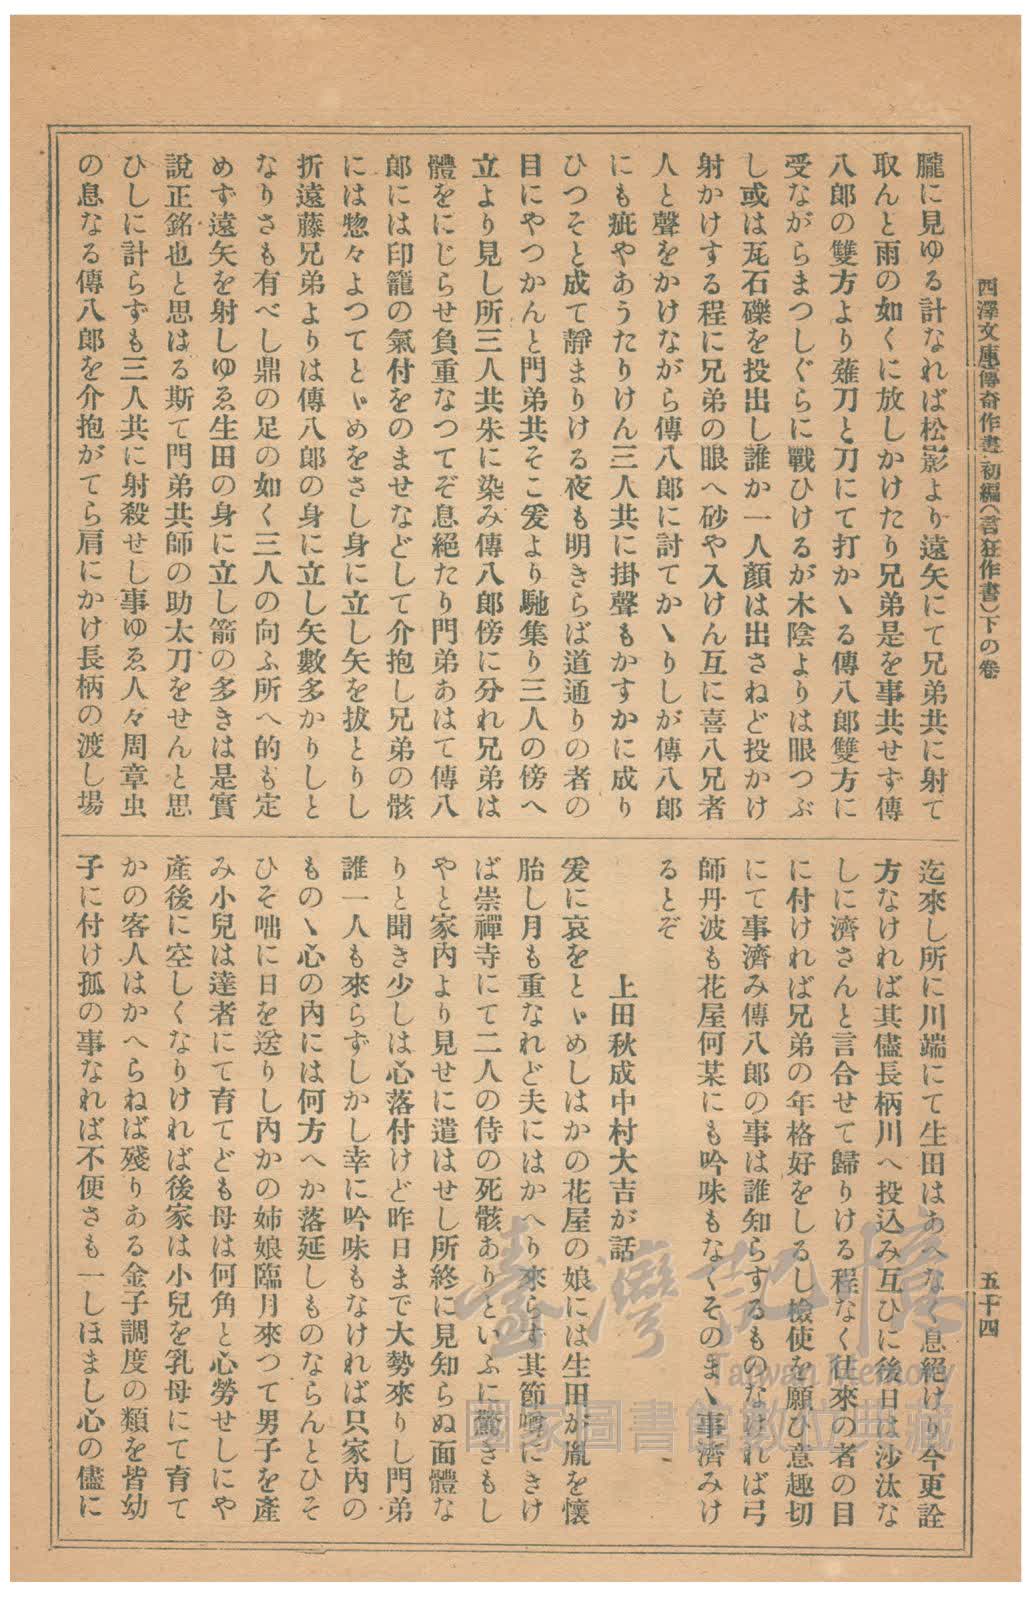 西澤文庫傳奇作書初編(言狂作書)下の卷
五十四
朧に見ゆる計なれば松影より遠矢にて兄弟共に射て
取んと雨の如くに放しかけたり兄弟是を事共せず傳
八郎の雙方より薙刀と刀にて打かゝる傳八郎雙方に
受ながらまつしぐらに戰ひけるが木陰よりは眼つぶ
し或は瓦石礫を投出し誰か一人顏は出さねど投かけ
射かけする程に兄弟の眼へ砂や入けん互に喜八兄者
人と聲をかけながら傳八郎に討てかゝりしが傳八郎
にも疵やあうたりけん三人共に掛聲もかすかに成り
ひつそと成て靜まりける夜も明きらば道通りの者の
目にやつかんと門弟共そこ爰より馳集り三人の傍へ
立より見し所三人共朱に染み傳八郎傍に分れ兄弟は
體をにじらせ負重なつてぞ息絕たり門弟あはて傳八
郎には印籠の氣付をのませなどして介抱し兄弟の骸
には惣々よつてとゞめをさし身に立し矢を拔とりし
折遠藤兄弟よりは傳八郎の身に立し矢數多かりしと
なりさも有べし鼎の足の如く三人の向ふ所へ的も定
めず遠矢を射しゆゑ生田の身に立し箭の多きは是實
說正銘也と思はる斯て門弟共師の助太刀をせんと思
ひしに計らずも三人共に射殺せし事ゆゑ人々周章虫
の息なる傳八郎を介抱がてら肩にかけ長柄の渡し場
迄來し所に川端にて生田はあへなく息絕けり今更詮
方なければ其儘長柄川へ投込み互ひに後日は沙汰な
しに濟さんと言合せて歸りける程なく往來の者の目
に付ければ兄弟の年格好をしるし檢使を願ひ意趣切
にて事濟み傳八郎の事は誰知らするものなければ弓
師丹波も花屋何某にも吟味もなくそのまゝ事濟みけ
るとぞ
上田秋成中村大吉が話
爰に哀をとゞめしはかの花屋の娘には生田が胤を懷
胎し月も重なれど夫にはかへり來らず其節噂にきけ
ば崇禪寺にて二人の侍の死骸ありといふに驚きもし
やと家內より見せに遣はせし所終に見知らぬ面體な
りと聞き少しは心落付けど昨日まで大勢來りし門弟
誰一人も來らずしかし幸に吟味もなければ只家內の
ものゝ心の內には何方へか落延しものならんとひそ
ひそ咄に日を送りし內かの姉娘臨月來つて男子を產
み小兒は達者にて育てども母は何角と心勞せしにや
產後に空しくなりければ後家は小兒を乳母にて育て
かの客人はかへらねば殘りある金子調度の類を皆幼
子に付け孤の事なれば不便さも一しほまし心の儘に
臺灣記憶
Taiwan Memory
國家圖書館數位典藏